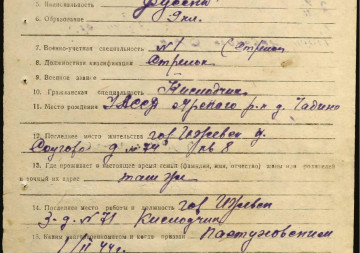 5. Национальность Русский
6. Образование 9 кл.
7. Военно-учетная специальность №1 (Стрелок
8. Должностная квалификация Стрелок
9. Военное звание
10. Гражданская специальность Кислодчик
11. Место рождения УАССР р-н д.
12. Последнее место жительства гор Ижевск у.
д № 74 кв 8
13. Где проживает в настоящее время семья (фамилия, имя, отчество) жены или родителей
и точный их адрес там же
14. Последнее место работы и должность гор Ижевск
З-д. № 71 Кислодчик
15. Каким райвоенкоматом и когда призван Пастуховским
1/II 44г.